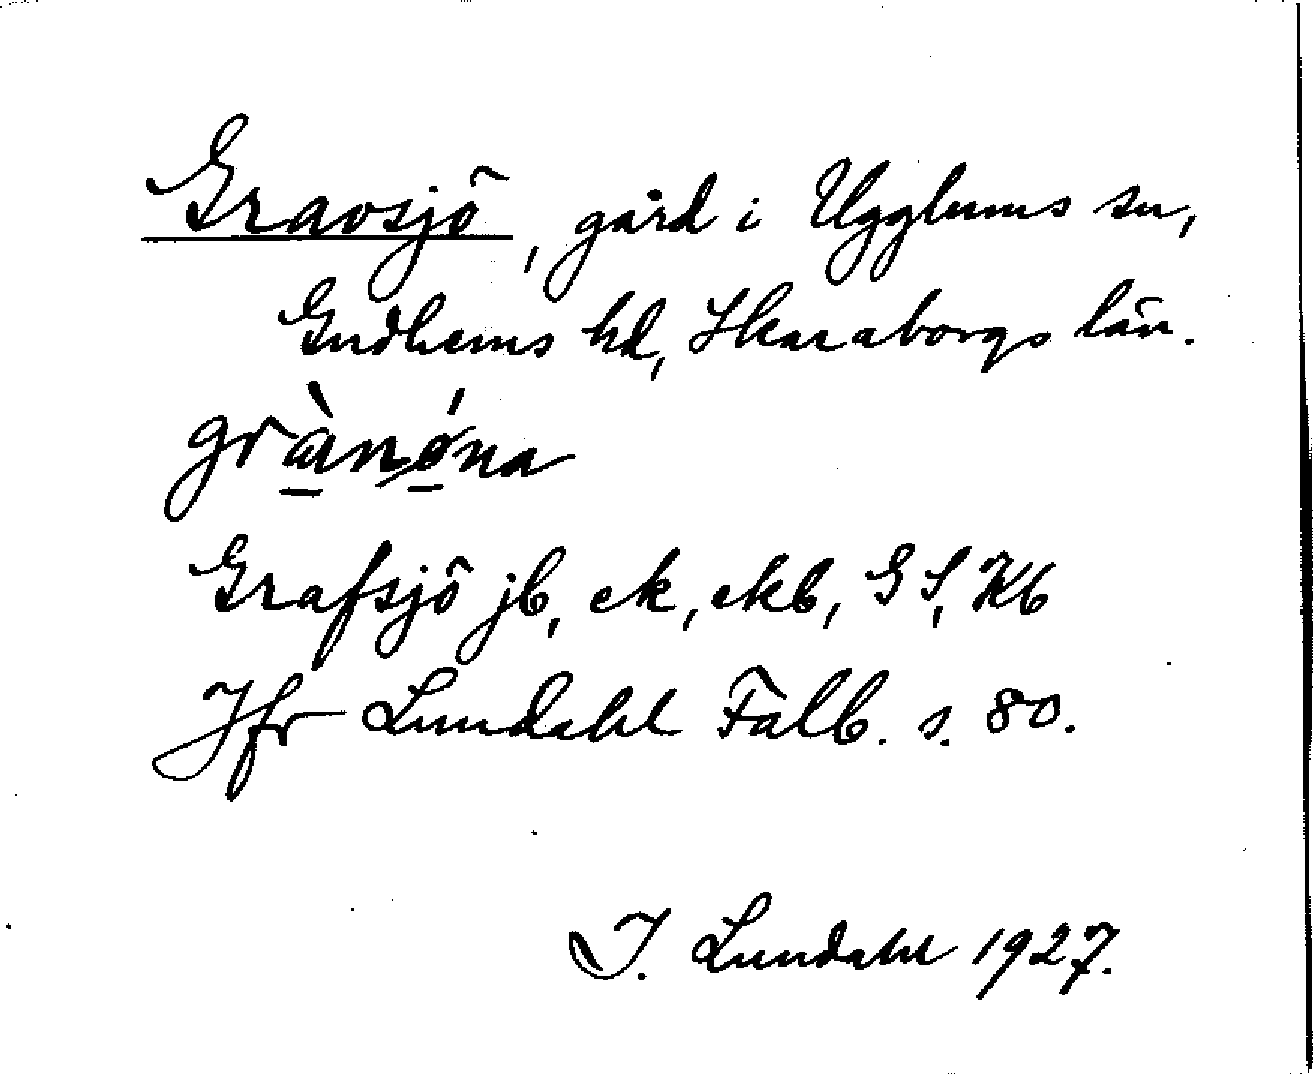 Gravsjö, gård i Ugglums sn,
Gudhems hd, Skaraborgs län.
Grafsjö jb, ek, ekb, GS, Kb
Jfr Lundahl Falb. s. 80.
I. Lundahl 1927.